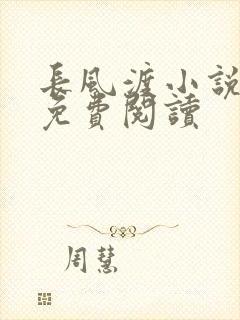 長風渡小說
免費閱讀
周慧